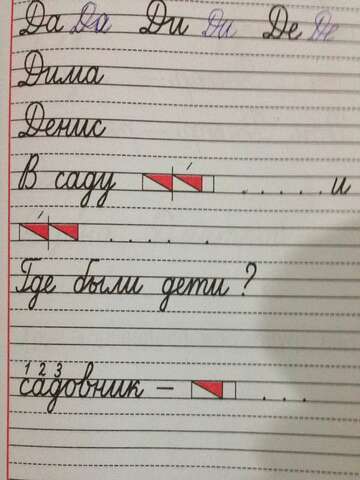 Да Да Ди Ди Де Де
Дима
Денис
В саду . . . . . и
. . . . . .
Где были дети?
1 2 3
садовник – . . .